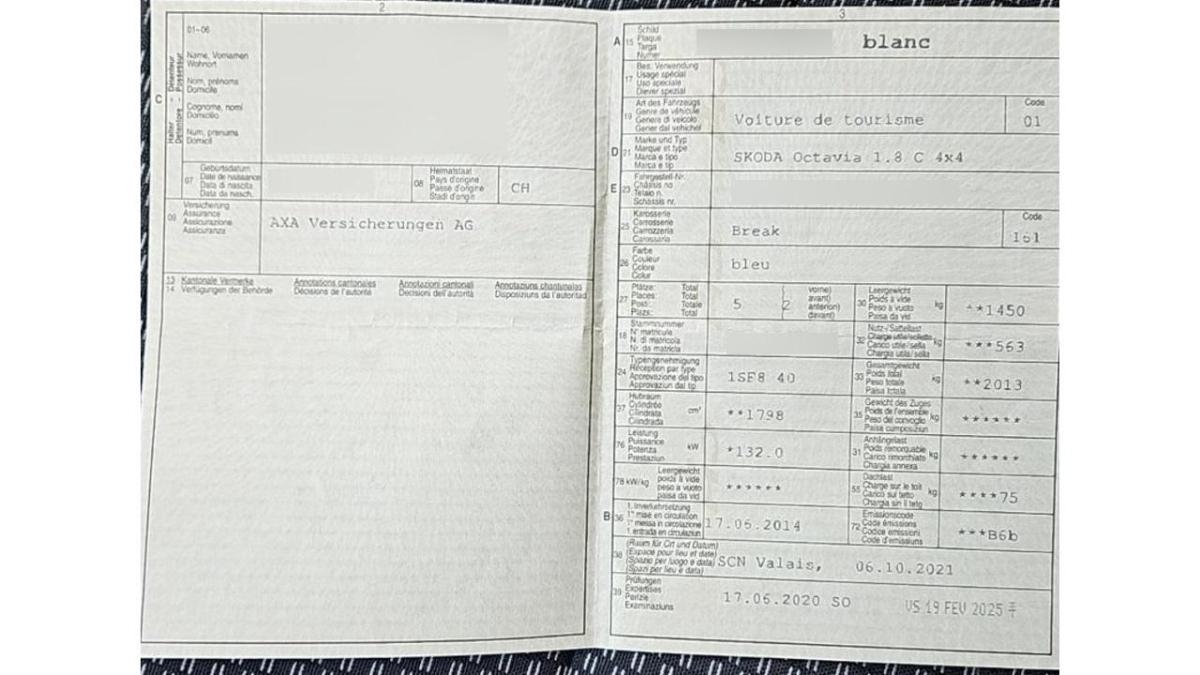 2
01-06
C
Halter - Détenteur
Detentore - Possessur
Name, Vornamen
Wohnort
Nom, prénoms
Domicile
Cognome, nomi
Domicilio
Num, prenums
Domicil
07
Geburtsdatum
Date de naissance
Data di nascita
Data da nasch.
08
Heimatstaat
Pays d'origine
Paese d'origine
Stadi d'origin
CH
09
Versicherung
Assurance
Assicurazione
Assicuranza
AXA Versicherungen AG
13 Kantonale Vermerke Annotations cantonales Annotazioni cantonali Annotaziuns chantunalas
14 Verfügungen der Behörde Décisions de l'autorité Decisioni dell'autorità Disposiziuns da l'autoritad
3
A 15
Schild
Plaque
Targa
Numer
blanc
17
Bes. Verwendung
Usage spécial
Uso speciale
Diever spezial
19
Art des Fahrzeugs
Genre de véhicule
Genere di veicolo
Gener dal vehichel
Voiture de tourisme
Code
01
D 21
Marke und Typ
Marque et type
Marca e tipo
Marca e tip
SKODA Octavia 1.8 C 4x4
E 23
Fahrgestell-Nr.
Châssis no
Telaio n.
Schassis nr.
25
Karosserie
Carrosserie
Carrozzeria
Carossaria
Break
Code
151
26
Farbe
Couleur
Colore
Colur
bleu
27
Plätze: Total
Places: Total
Posti: Totale
Plazs: Total
5
2
vorne)
avant)
anteriori)
davant)
30
Leergewicht
Poids à vide
Peso a vuoto
Paisa da vid
kg
**1450
18
Stammnummer
N° matricule
N. di matricola
Nr. da matricla
32
Nutz-/Sattellast
Charge utile/sellette
Carico utile/sella
Chargia utila/sella
kg
***563
24
Typengenehmigung
Réception par type
Approvazione del tipo
Approvaziun dal tip
1SF8 40
33
Gesamtgewicht
Poids total
Peso totale
Paisa totala
kg
**2013
37
Hubraum
Cylindrée
Cilindrata
Cilindrada
cm³
**1798
35
Gewicht des Zuges
Poids de l'ensemble
Peso del convoglio
Paisa cumposiziun
kg
******
76
Leistung
Puissance
Potenza
Prestaziun
kW
*132.0
31
Anhängelast
Poids remorquable
Carico rimorchiato
Chargia annexa
kg
******
78 kW/kg
Leergewicht
poids à vide
peso a vuoto
paisa da vid
******
55
Dachlast
Charge sur le toit
Carico sul tetto
Chargia sin il tetg
kg
****75
B 36
1. Inverkehrsetzung
1re mise en circulation
1a messa in circolazione
1. entrada en circulaziun
17.06.2014
72
Emissionscode
Code émissions
Codice emissioni
Code d'emissiuns
***B6b
38
(Raum für Ort und Datum)
(Espace pour lieu et date)
(Spazio per luogo e data)
(Spazi per lieu e data)
SCN Valais, 06.10.2021
39
Prüfungen
Expertises
Perizie
Examinaziuns
17.06.2020 SO
VS 19 FEV 2025